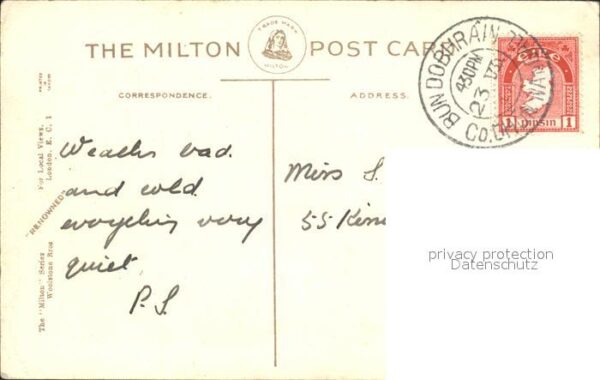 THE MILTON POST CAR
TRADE MARK
MILTON
CORRESPONDENCE.
ADDRESS.
BUNDOBHRÁIN
4 30 PM
23
Co.
1 PINSIN 1
Weather bad.
and cold
everything very
quiet
P.S.
Miss S.
55
privacy protection
Datenschutz
The "Milton" Series
Woolstone Bros
"RENOWNED"
For Local Views.
London. E. C. 1